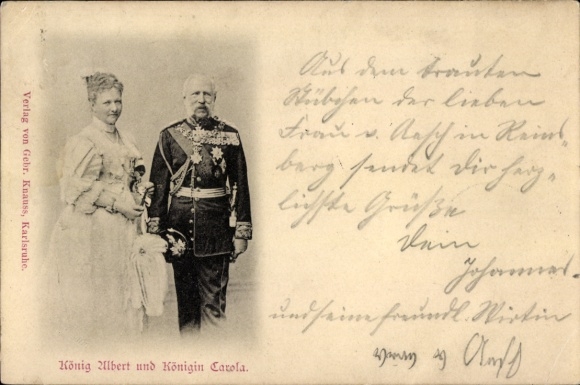 Verlag von Gebr. Knauss, Karlsruhe.
König Albert und Königin Carola.
Aus dem trauten
Stübchen der lieben
Frau v. Aasch in Reins-
berg sendet Dir herz-
lichste Grüße
Dein
Johannes.
und seine freundl. Wirtin
v Aasch